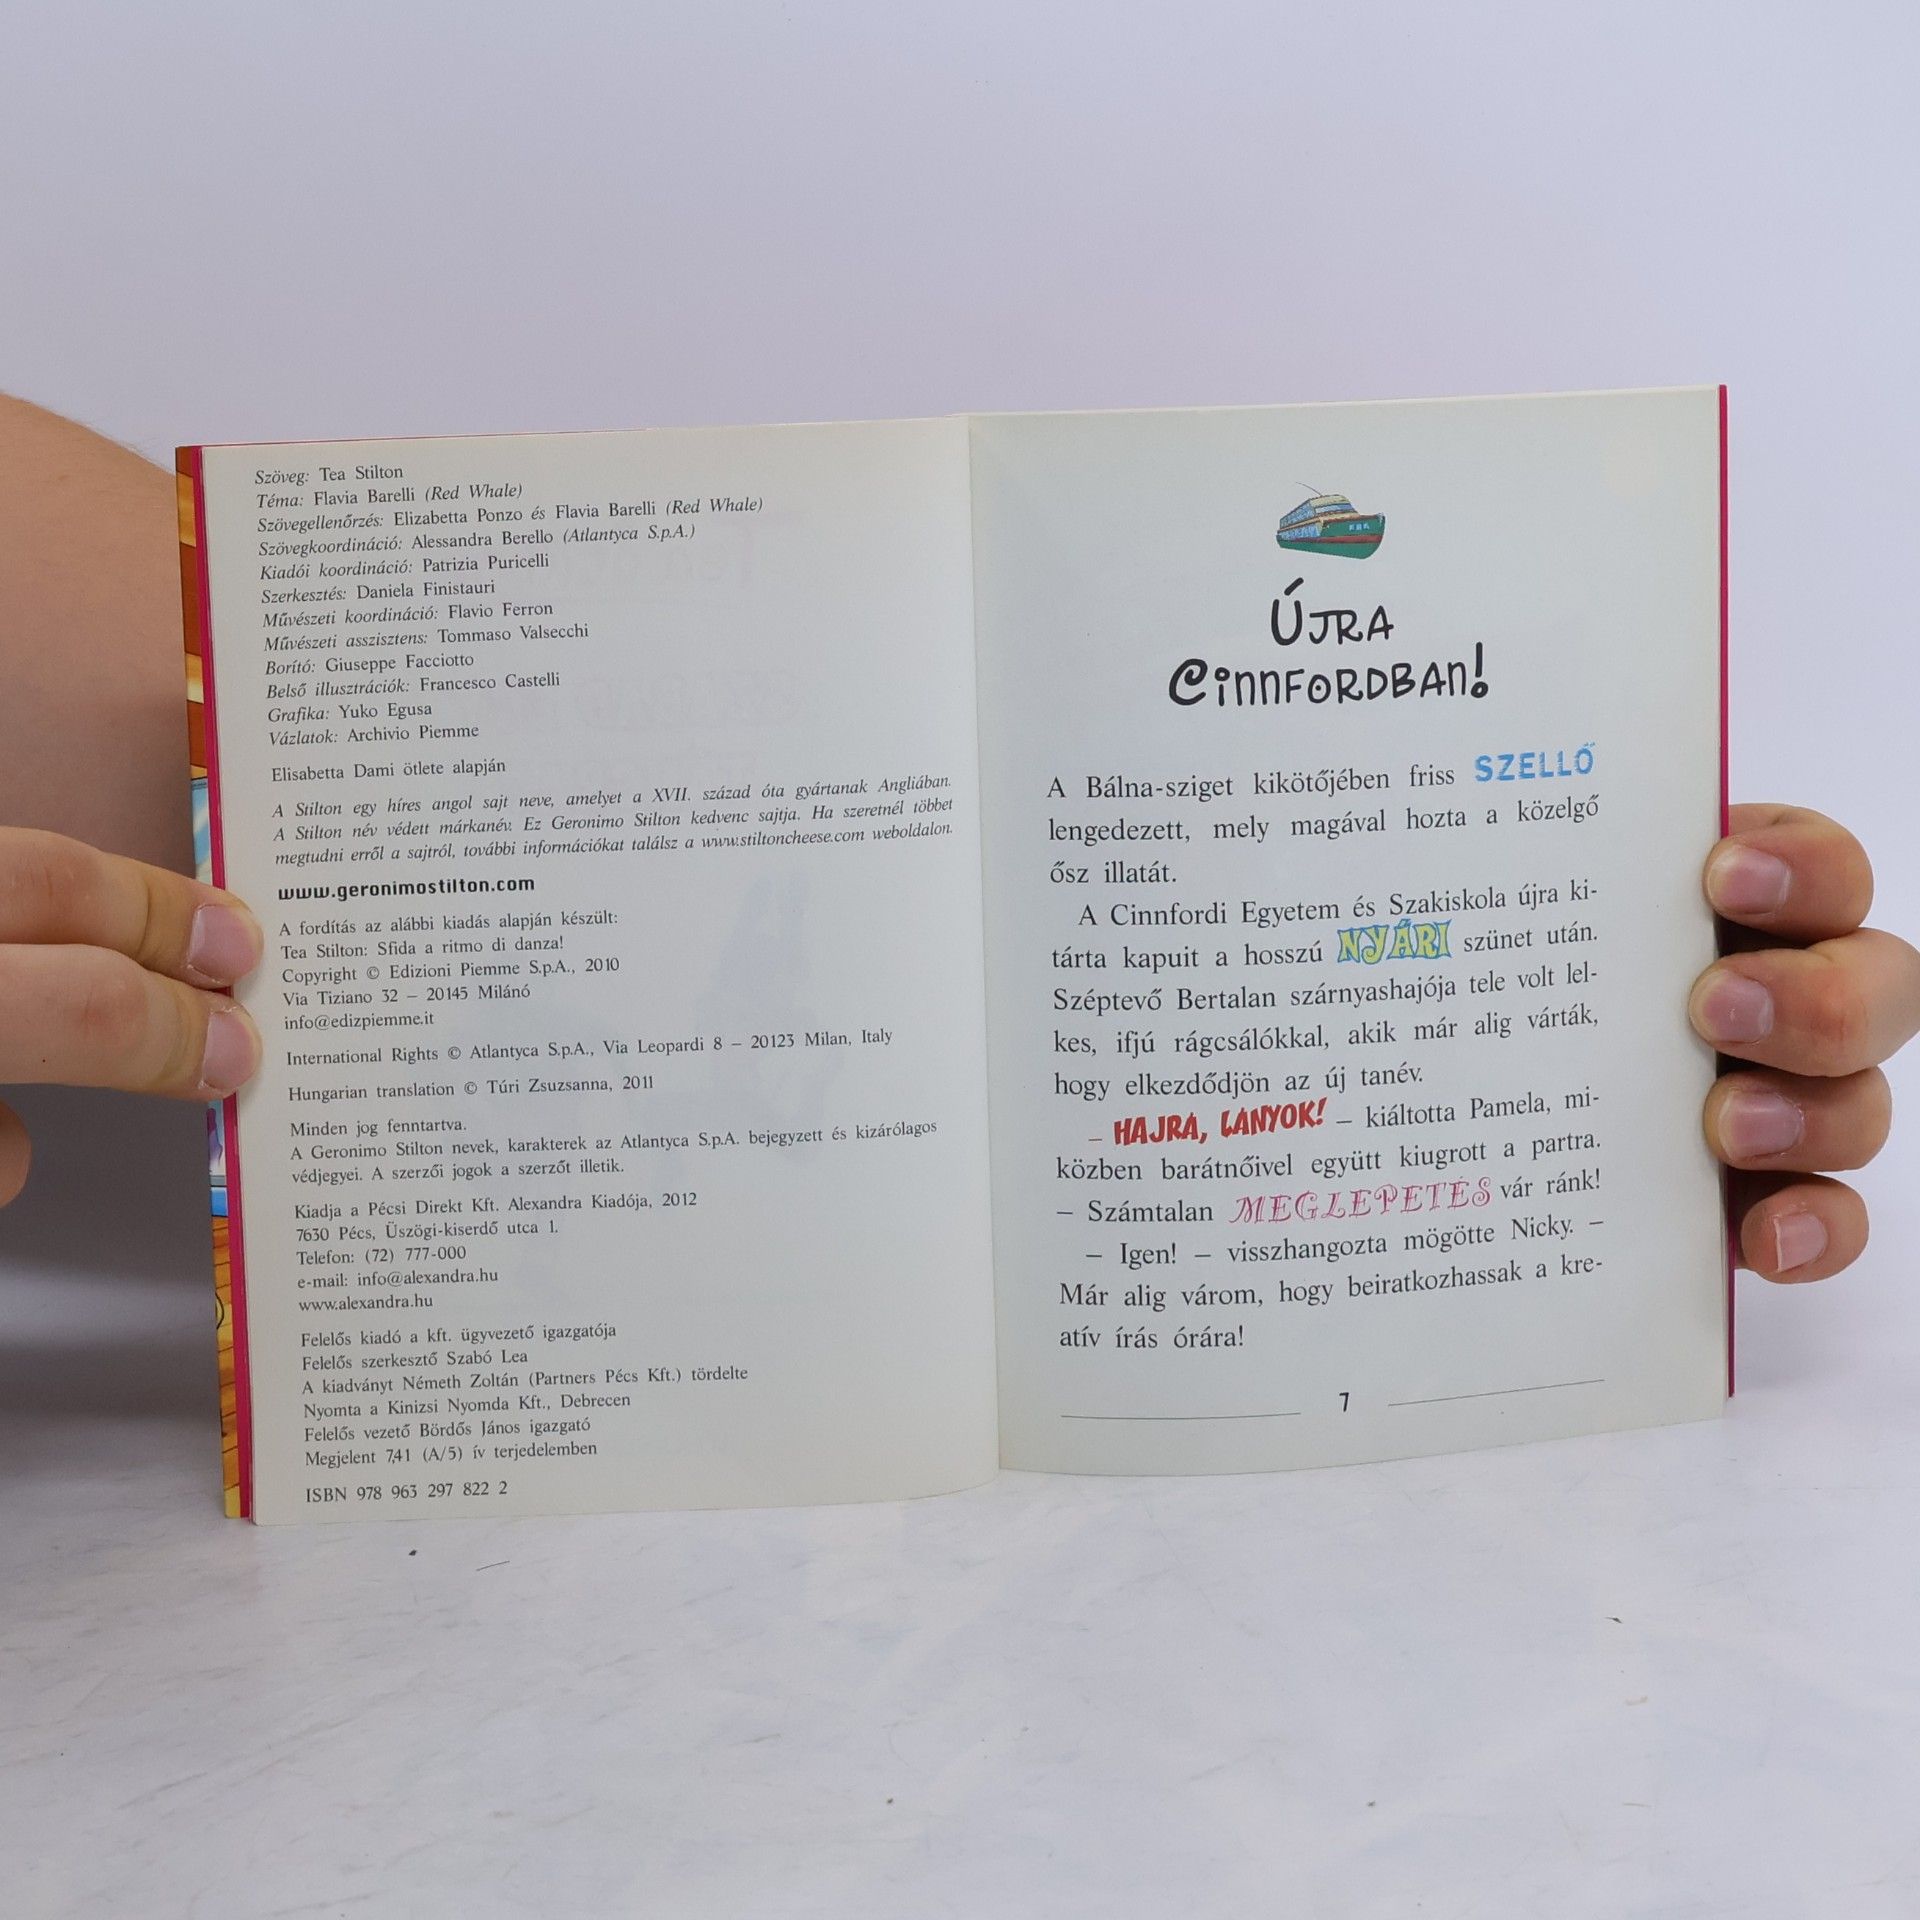 Szöveg: Tea Stilton
Téma: Flavia Barelli (Red Whale)
Szövegellenőrzés: Elizabetta Ponzo és Flavia Barelli (Red Whale)
Szövegkoordináció: Alessandra Berello (Atlantyca S.p.A.)
Kiadói koordináció: Patrizia Puricelli
Szerkesztés: Daniela Finistauri
Művészeti koordináció: Flavio Ferron
Művészeti asszisztens: Tommaso Valsecchi
Borító: Giuseppe Facciotto
Belső illusztrációk: Francesco Castelli
Grafika: Yuko Egusa
Vázlatok: Archivio Piemme
Elisabetta Dami ötlete alapján
A Stilton egy híres angol sajt neve, amelyet a XVII. század óta gyártanak Angliában.
A Stilton név védett márkanév. Ez Geronimo Stilton kedvenc sajtja. Ha szeretnél többet
megtudni erről a sajtról, további információkat találsz a www.stiltoncheese.com weboldalon.
www.geronimostilton.com
A fordítás az alábbi kiadás alapján készült:
Tea Stilton: Sfida a ritmo di danza!
Copyright © Edizioni Piemme S.p.A., 2010
Via Tiziano 32 – 20145 Milánó
info@edizpiemme.it
International Rights © Atlantyca S.p.A., Via Leopardi 8 – 20123 Milan, Italy
Hungarian translation © Túri Zsuzsanna, 2011
Minden jog fenntartva.
A Geronimo Stilton nevek, karakterek az Atlantyca S.p.A. bejegyzett és kizárólagos
védjegyei. A szerzői jogok a szerzőt illetik.
Kiadja a Pécsi Direkt Kft. Alexandra Kiadója, 2012
7630 Pécs, Üszögi-kiserdő utca 1.
Telefon: (72) 777-000
e-mail: info@alexandra.hu
www.alexandra.hu
Felelős kiadó a kft. ügyvezető igazgatója
Felelős szerkesztő Szabó Lea
A kiadványt Németh Zoltán (Partners Pécs Kft.) tördelte
Nyomta a Kinizsi Nyomda Kft., Debrecen
Felelős vezető Bördős János igazgató
Megjelent 7,41 (A/5) ív terjedelemben
ISBN 978 963 297 822 2
ÚJRA
CINNFORDBAN!
A Bálna-sziget kikötőjében friss SZELLŐ
lengedezett, mely magával hozta a közelgő
ősz illatát.
A Cinnfordi Egyetem és Szakiskola újra ki-
tárta kapuit a hosszú NYÁRI szünet után.
Széptevő Bertalan szárnyashajója tele volt lel-
kes, ifjú rágcsálókkal, akik már alig várták,
hogy elkezdődjön az új tanév.
– HAJRÁ, LÁNYOK! – kiáltotta Pamela, mi-
közben barátnőivel együtt kiugrott a partra.
– Számtalan MEGLEPETÉS vár ránk!
– Igen! – visszhangozta mögötte Nicky. –
Már alig várom, hogy beiratkozhassak a kre-
atív írás órára!
7